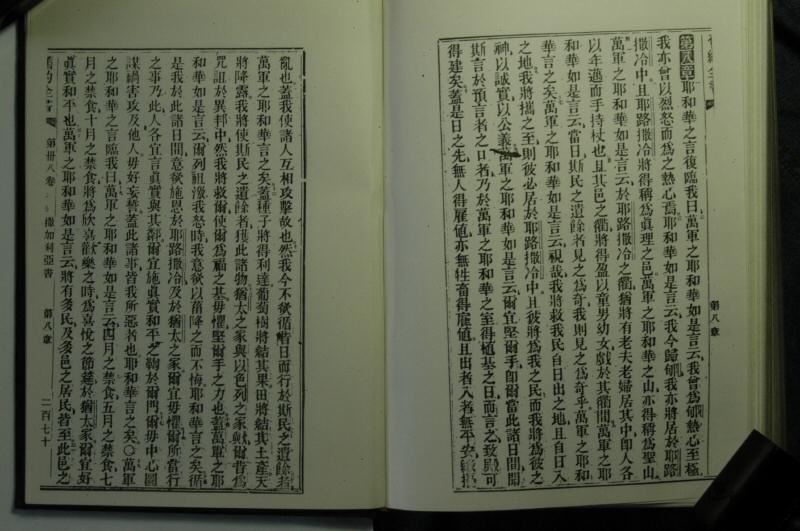 舊約全書
第八章
第八章耶和華之言復臨我曰萬軍之耶和華如是言云我曾爲郇熱心至極
我亦曾以烈怒而爲之熱心焉耶和華如是言云我今歸郇我亦將居於耶路
撒冷中且耶路撒冷將得稱爲眞理之邑萬軍之耶和華之山亦得稱爲聖山
萬軍之耶和華如是言云於耶路撒冷之衢猶將有老夫老婦居其中即人各
以年邁而手持杖也且其邑之衢將得盈以童男幼女戲於其衢間萬軍之耶
和華如是言云當日斯民之遺餘者見之爲奇我則見之爲奇乎萬軍之耶和
華言之矣萬軍之耶和華如是言云視哉我將救我民自日出之地且自日入
之地我將攜之至則彼必居於耶路撒冷中且彼將爲我之民而我將爲彼之
神以誠實以公義萬軍之耶和華如是言云爾宜堅爾手即爾當此諸日間聞
斯言於預言者之口者乃於萬軍之耶和華之室得植基之日而言之致殿可
得建矣蓋是日之先無人得雇値亦無牲畜得雇値且出者入者無平安
亂也蓋我使諸人互相攻擊故也然我今不欲循昔日而行於斯民之遺餘者
萬軍之耶和華言之矣蓋種子將得利達葡萄樹將結其果田將結其土產天
將降露我將使斯民之遺餘者獲此諸物猶太之家與以色列之家歟爾昔爲
咒詛於異邦中然我將救爾使爾爲福之基毋懼堅爾手之力也蓋萬軍之耶
和華如是言云爾列祖激我怒時我意欲以菑降之而不悔耶和華言之矣循
是我於此諸日間意欲施恩於耶路撒冷及於猶太之家爾宜毋懼爾所當行
之事乃此人各宜言眞實與其鄰爾宜施眞實和平之鞫於爾門爾毋中心圖
謀禍害攻及他人毋好妄誓蓋此諸事皆我所惡者也耶和華言之矣〇萬軍
之耶和華之言臨我曰萬軍之耶和華如是言云四月之禁食五月之禁食七
月之禁食十月之禁食將爲欣喜歡樂之時爲喜悅之節筵於猶太家爾宜好
眞實和平也萬軍之耶和華如是言云將有多民及多邑之居民皆至此邑之
舊約全書 第卅八卷 撒加利亞書 第八章 二百七十